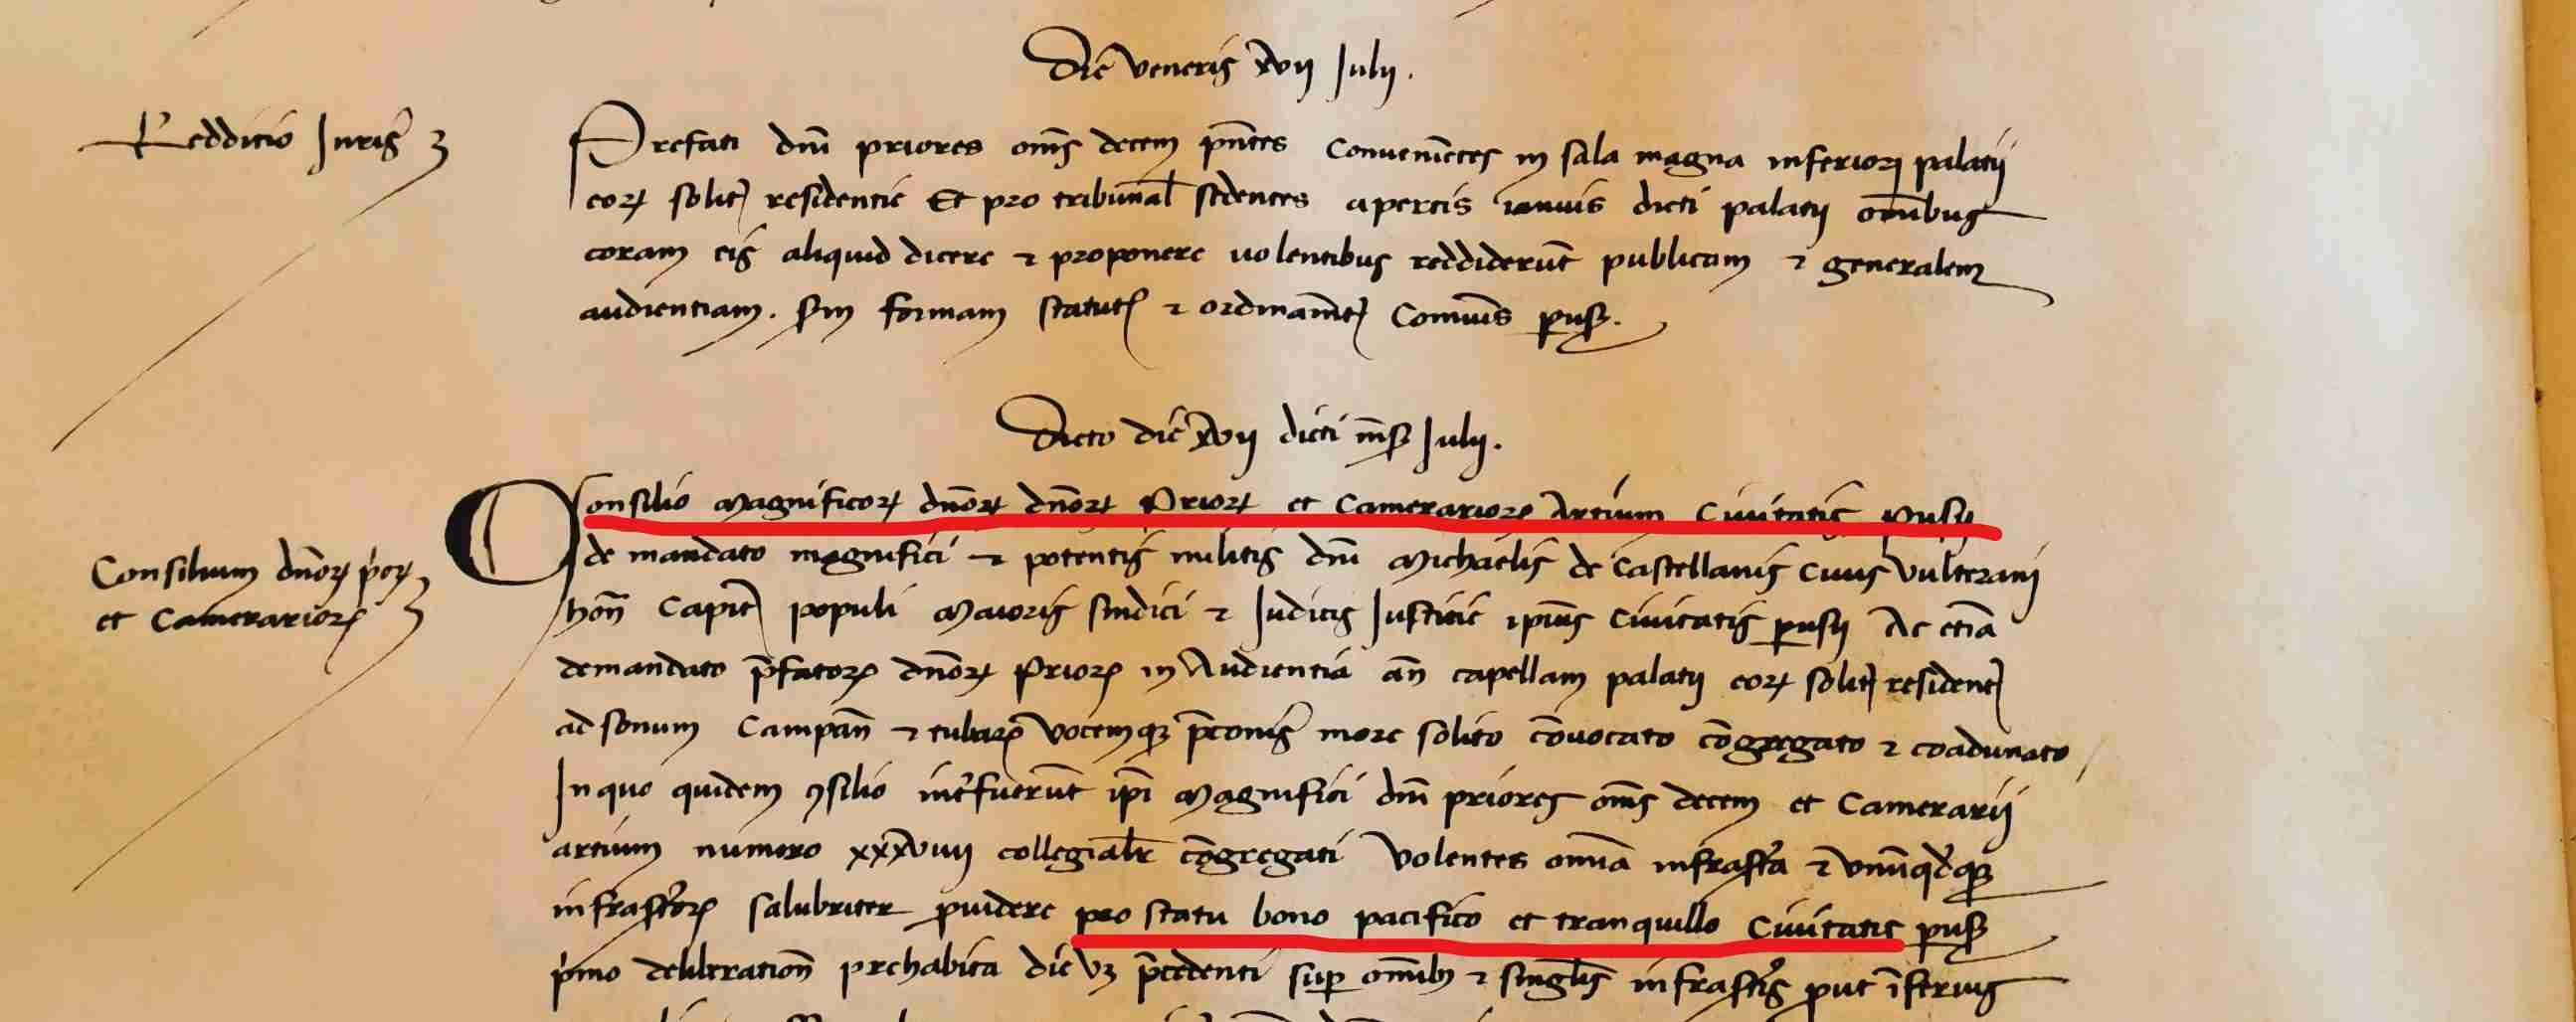 Die veneris xvii Julij.
Redditio Juris
Prefati dn̄i priores om̄s decem pn̄tes convenie͞tes in sala magna inferiori palatij
eoꝝ solit residentie Et pro tribunal̄ sedentes apertis ianuis dicti palatij om̄ibus
coram eis aliquid dicere ⁊ proponere volentibus reddiderūt publicam ⁊ generalem
audientiam. sm formam statut ⁊ ordinam̄t Comuīs perus.
Dicto die xvii dicti mēs Julij.
Consilio Magnificoꝝ dn̄oꝝ dn̄oꝝ Prioꝝ et Camerarioꝝ Artium Civitatis perusij
de mandato magnifici ⁊ potentis militis dn̄i Michaelis de Castellanis civis vulterani
hon̄ Capit populi Maioris sindici ⁊ Judicis Justitie ipīus Civitatis perusij Ac etiā
Consilium dn̄oꝝ p̄oꝝ
et Camerarioꝝ
de mandato p̄fatoꝝ dn̄oꝝ Prioꝝ in Audientia an̄ capellam palatij eoꝝ solit resident
ad sonum Campan̄ ⁊ tubaꝝ vocemqꝫ p̄conis more solito cōvocato cōgregato ⁊ coadunato
In quo quidem ꝯsilio int̄fuerūt ip̄i Magnifici dn̄i priores om̄s decem et Camerarij
artium numero xxxviiij collegial̄r cōgregati Volentes omnia infrasc̄ta ⁊ vnūqd̄qꝫ
infrasc̄toꝝ salubriter ꝓuidere pro statu bono pacifico et tranquillo Civitatis perus
p̄mo deliberation̄ prehabita die vꝫ p̄cedenti sup om̄ibꝫ ⁊ singulīs infrasc̄tis ꝓut īferius